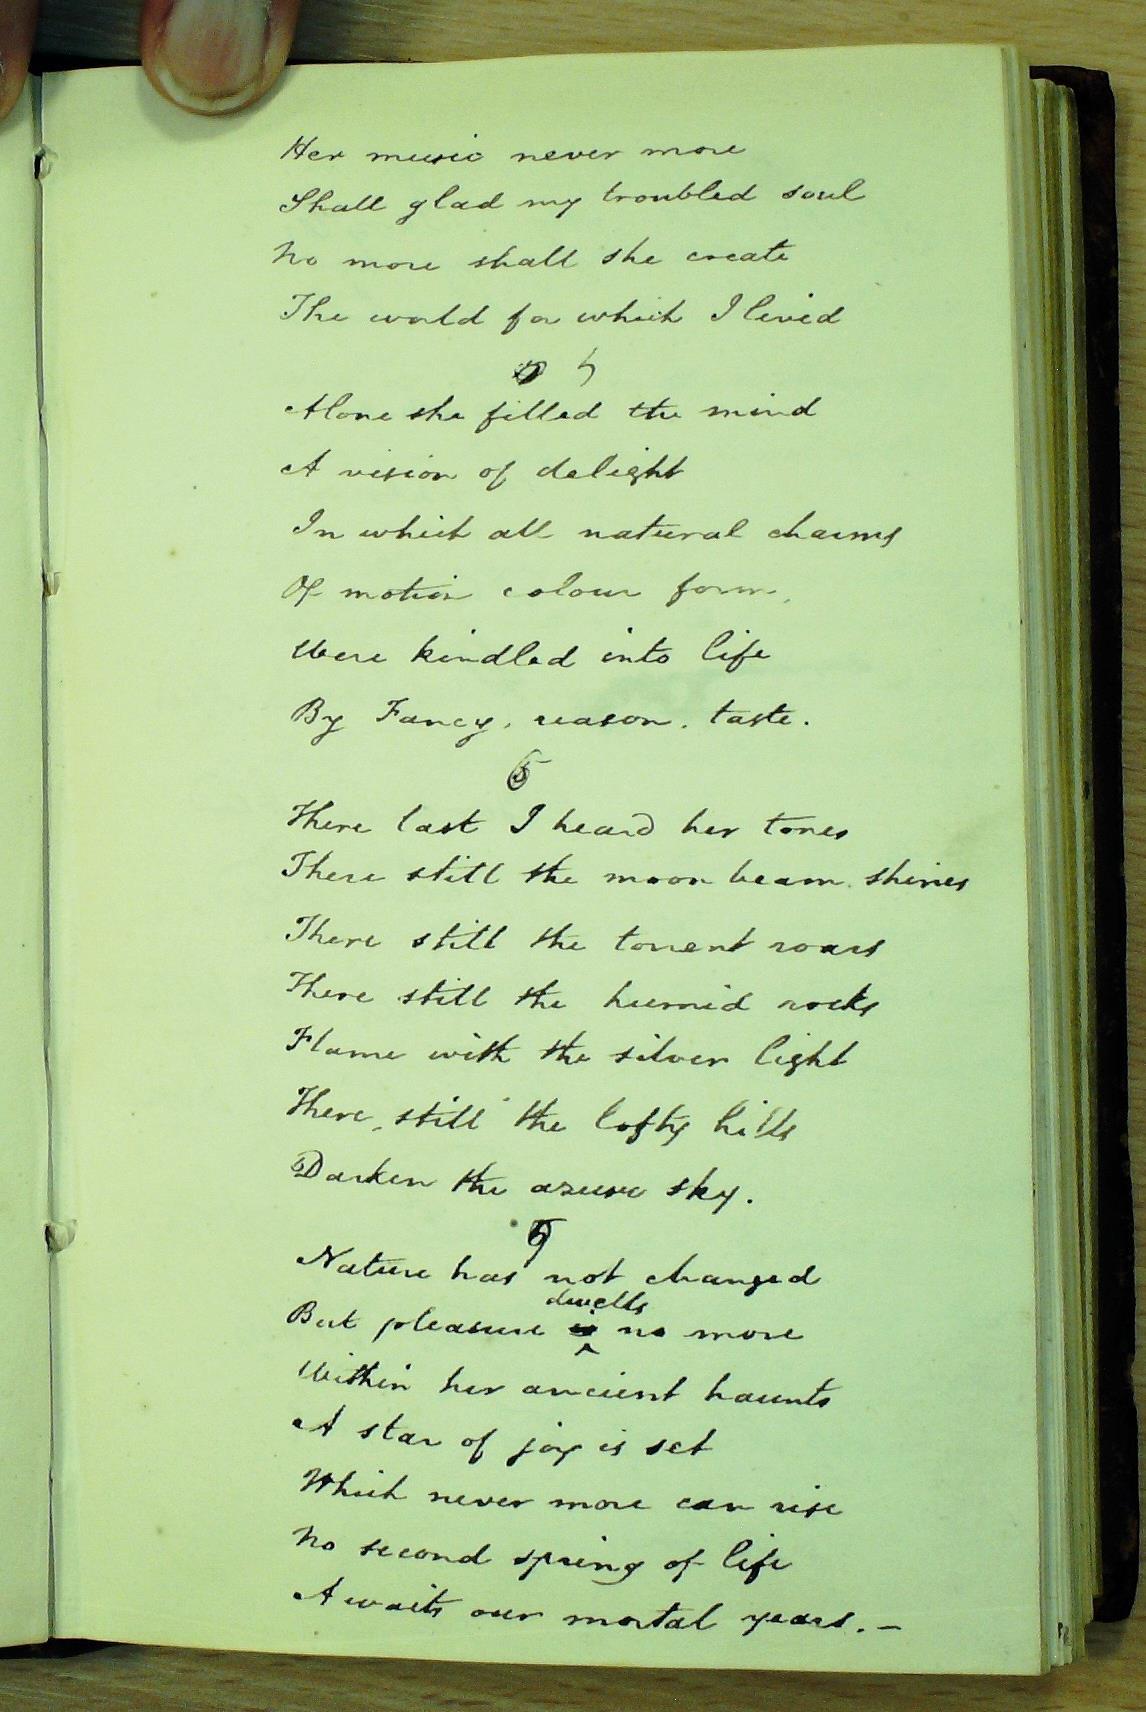 Her music never more
Shall glad my troubled soul
No more shall she create
The world for which I lived
5
Alone she filled the mind
A vision of delight
In which all natural charms
Of motion colour form,
Were kindled into life
By Fancy, reason, taste.
6
There last I heard her tones
There still the moon beam shines
There still the torrent roars
There still the humid rocks
Flame with the silver light
There, still the lofty hills
Darken the azure sky.
7
Nature has not changed
dwells
But pleasure is no more
Within her ancient haunts
A star of joy is set
Which never more can rise
No second spring of life
Awaits our mortal years. –